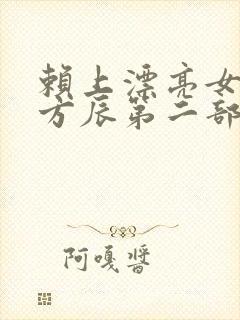 賴上漂亮女
方辰第二部
阿嘎醬